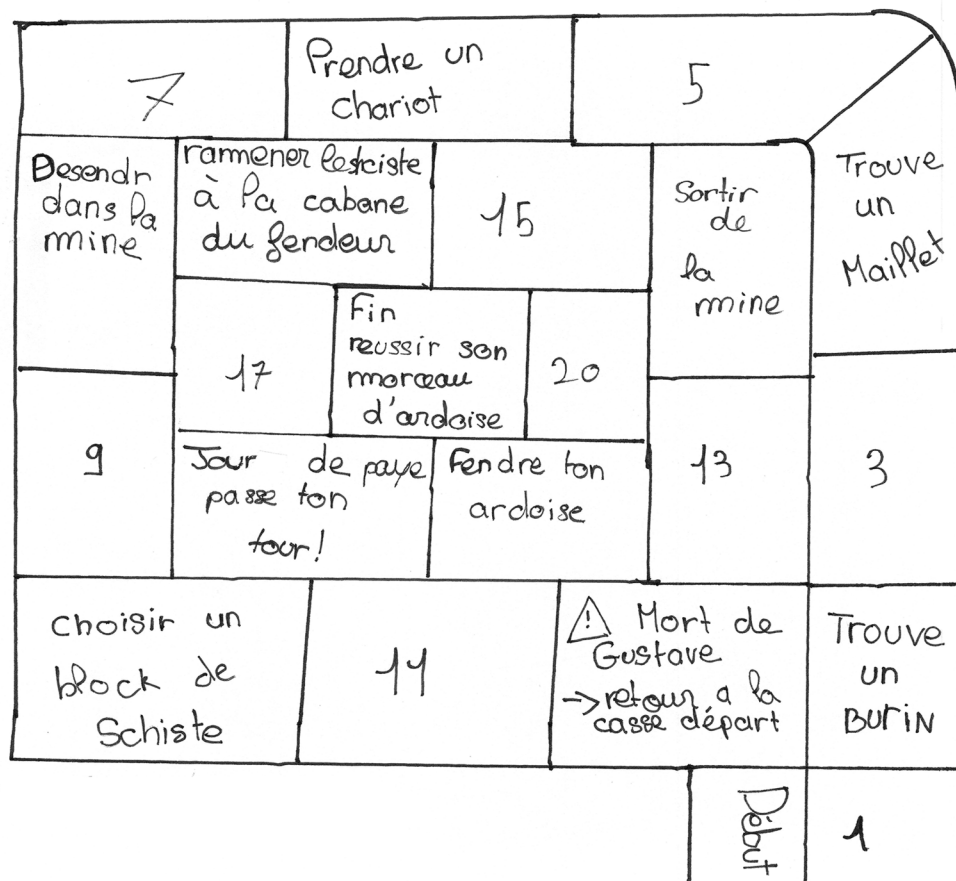 7
Prendre un
chariot
5
Desendr
dans la
mine
ramener leschiste
à la cabane
du fendeur
15
Sortir
de
la
mine
Trouve
un
Maillet
17
Fin
reussir son
morceau
d'ardoise
20
9
Jour de paye
passe ton
tour!
Fendre ton
ardoise
13
3
choisir un
block de
Schiste
11
! Mort de
Gustave
→ retour a la
casse départ
Trouve
un
BuriN
Début
1